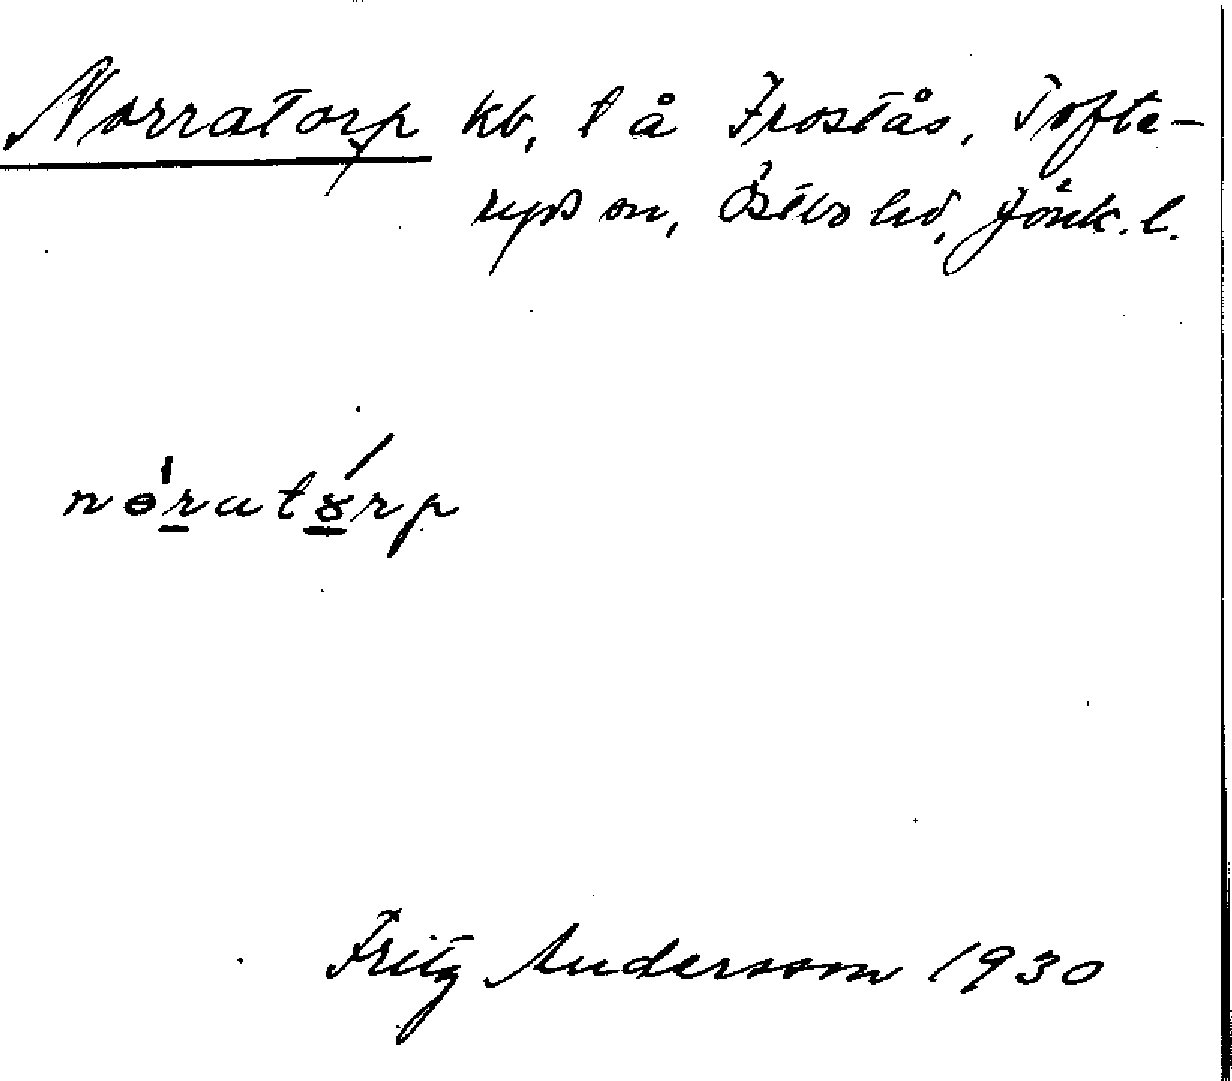 Norratorp kb, t å Frostås, Tofte-
ryds sn, Östbo hd, Jönk. l.
nɵ́r̲atɤ̲́rp
Fritz Andersson 1930